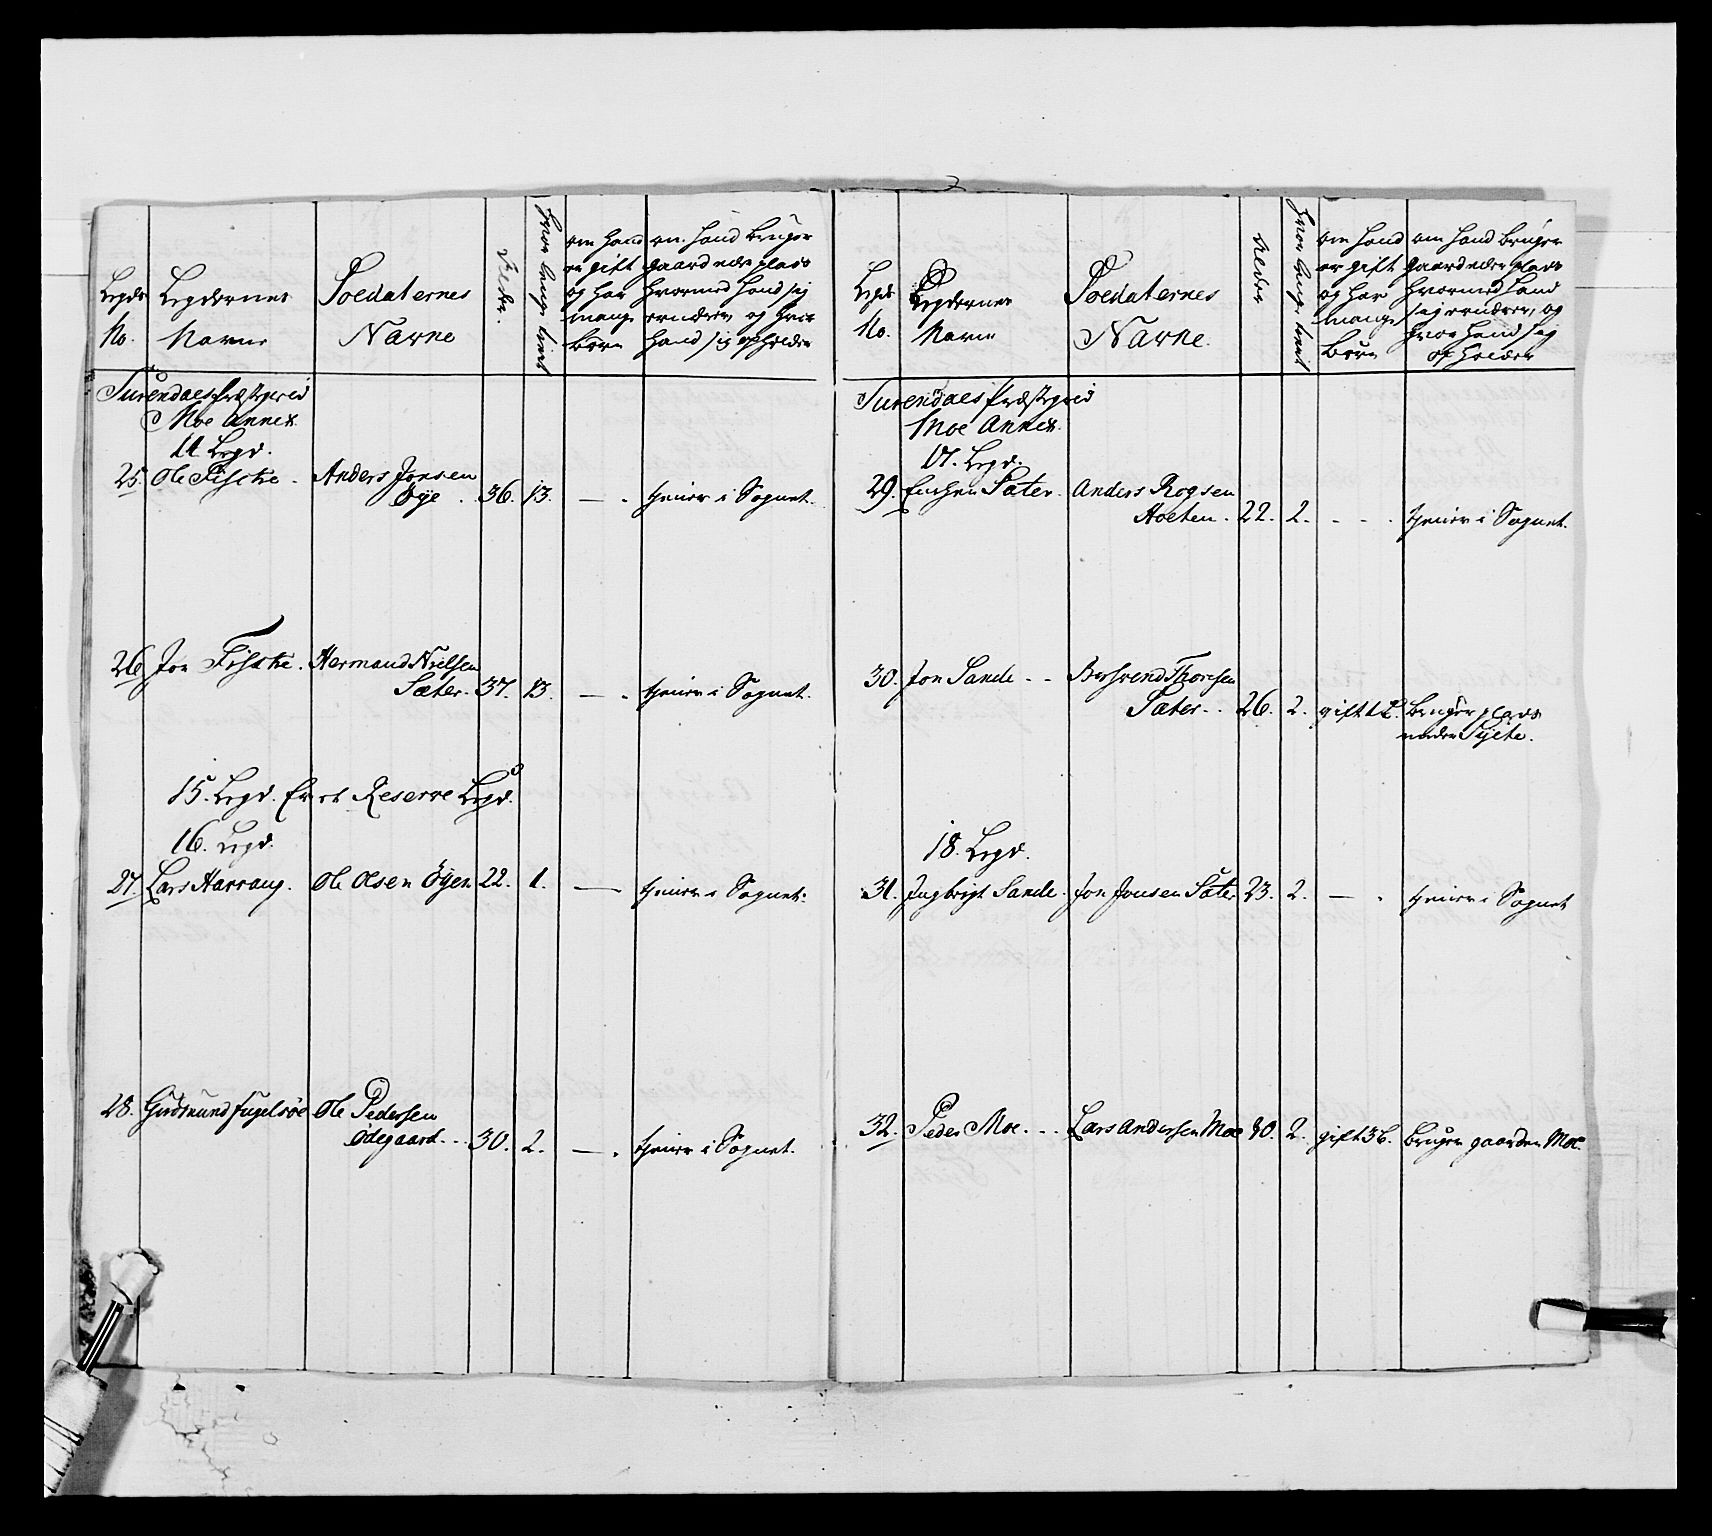 Legds No.
Legdernes Navne
Soldaternes Navne
Alder.
hvor længe tient
om hand er gift og har mange børn
om hand bruger gaard eller plads hvormed hand sig ernærer og hvor hand sig opholder
Surendals Præstegield
Moe Annex
14 Legd.
25. Ole Fiske. Anders Jonsen Øye. 36. 13. — . tiener i Sognet.
26 Jon Fiske. Hermand Nielsen Sæter. 37. 13. — . tiener i Sognet.
15. Legd. Er et Reserve Legd.
16. Legd.
27. Lars Harrang. Ole Olsen Øyen 22. 1. — tiener i Sognet.
28. Gudmund Fugelsøe Ole Pedersen Ødegaard... 30. 2. — . tiener i Sognet.
Legds No.
Legdernes Navne
Soldaternes Navne.
Alder
hvor længe tient
om hand er gift og har mange børn
om hand bruger gaard eller plads hvormed hand sig ernærer, og hvor hand sig opholder
Surendals Præstegield
Moe Annex.
17. Legd.
29. Sæter. Anders Rogsen Holten. 22. 2. - - . tiener i Sognet.
30. Jon Sande - - Thoresen Sæter.. 26. 2. gift bruger plads under
18. Legd.
31. Ingbrigt Sande. Jon Jonsen Sæter 23. 2. — . tiener i Sognet
32. Peder Moe. - - Lars Andersen Moe 30. 2. gift 3 b. bruger gaarden Moe.